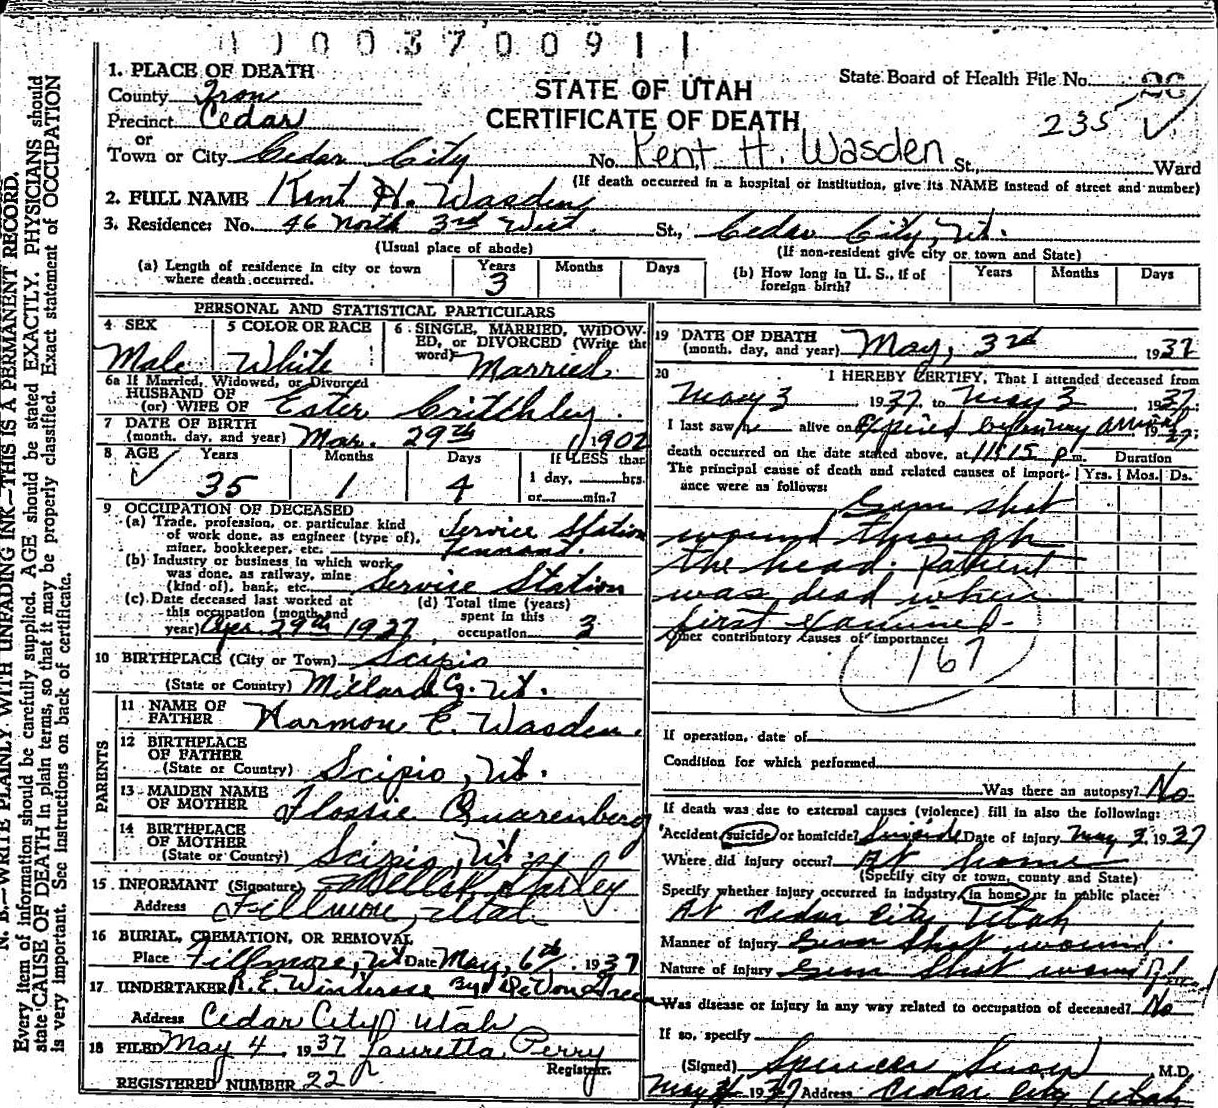 0 0 0 0 3 7 0 0 9 1 1
1. PLACE OF DEATH
County Iron
Precinct Cedar
or
Town or City Cedar City No. Kent H. Wasden St., Ward
STATE OF UTAH
CERTIFICATE OF DEATH
State Board of Health File No. 20
235 ✓
(If death occurred in a hospital or institution, give its NAME instead of street and number)
2. FULL NAME Kent H. Wasden
3. Residence: No. 46 North 3rd West. St., Cedar City, Ut.
(Usual place of abode) (If non-resident give city or town and State)
(a) Length of residence in city or town where death occurred. Years 3 Months Days
(b) How long in U. S., if of foreign birth? Years Months Days
PERSONAL AND STATISTICAL PARTICULARS
4 SEX Male
5 COLOR OR RACE White
6 SINGLE, MARRIED, WIDOWED, or DIVORCED (Write the word) Married.
6a If Married, Widowed, or Divorced
HUSBAND OF
(or) WIFE OF Ester Critchley.
7 DATE OF BIRTH
(month, day, and year) Mar. 29th 1902
8 AGE Years Months Days If LESS than
✓ 35 1 4 1 day, hrs.
or min.?
9 OCCUPATION OF DECEASED
(a) Trade, profession, or particular kind of work done, as engineer (type of), miner, bookkeeper, etc. Service Station
(b) Industry or business in which work was done, as railway, mine (kind of), bank, etc. Service Station
(c) Date deceased last worked at this occupation (month and year) Apr. 29th 1937
(d) Total time (years) spent in this occupation 3
10 BIRTHPLACE (City or Town) Scipio
(State or Country) Millard Co. Ut.
PARENTS
11 NAME OF FATHER Harmon E. Wasden.
12 BIRTHPLACE OF FATHER
(State or Country) Scipio, Ut.
13 MAIDEN NAME OF MOTHER Flossie Quarenberg
14 BIRTHPLACE OF MOTHER
(State or Country) Scipio, Ut.
15 INFORMANT (Signature)
Address Fillmore, Utah
16 BURIAL, CREMATION, OR REMOVAL
Place Fillmore, Ut Date May, 6th 1937
17 UNDERTAKER R. E. By DeVon Green
Address Cedar City, Utah
18 FILED May 4, 1937 Lauretta Perry
Registrar.
REGISTERED NUMBER 22
19 DATE OF DEATH
(month, day, and year) May, 3rd 1937
20 I HEREBY CERTIFY, That I attended deceased from
May 3 1937, to May 3 1937.
I last saw h alive on Expired by my arrival 1937;
death occurred on the date stated above, at 11:15 p m. Duration
The principal cause of death and related causes of importance were as follows: Yrs. Mos. Ds.
Gun shot
wound through
the head. Patient
was dead when
first examined.
Other contributory causes of importance:
167
If operation, date of
Condition for which performed
Was there an autopsy? No
If death was due to external causes (violence) fill in also the following:
Accident, suicide or homicide? Suicide Date of injury May 3, 1937
Where did injury occur? At home
(Specify city or town, county and State)
Specify whether injury occurred in industry, in home, or in public place:
At Cedar City Utah
Manner of injury Gun Shot wound.
Nature of injury Gun Shot wound
Was disease or injury in any way related to occupation of deceased? No
If so, specify
(Signed) Spencer M.D.
May 1937 Address Cedar City Utah
N. B.—WRITE PLAINLY WITH UNFADING INK—THIS IS A PERMANENT RECORD.
Every item of information should be carefully supplied. AGE should be stated EXACTLY. PHYSICIANS should
state CAUSE OF DEATH in plain terms, so that it may be properly classified. Exact statement of OCCUPATION
is very important. See instructions on back of certificate.